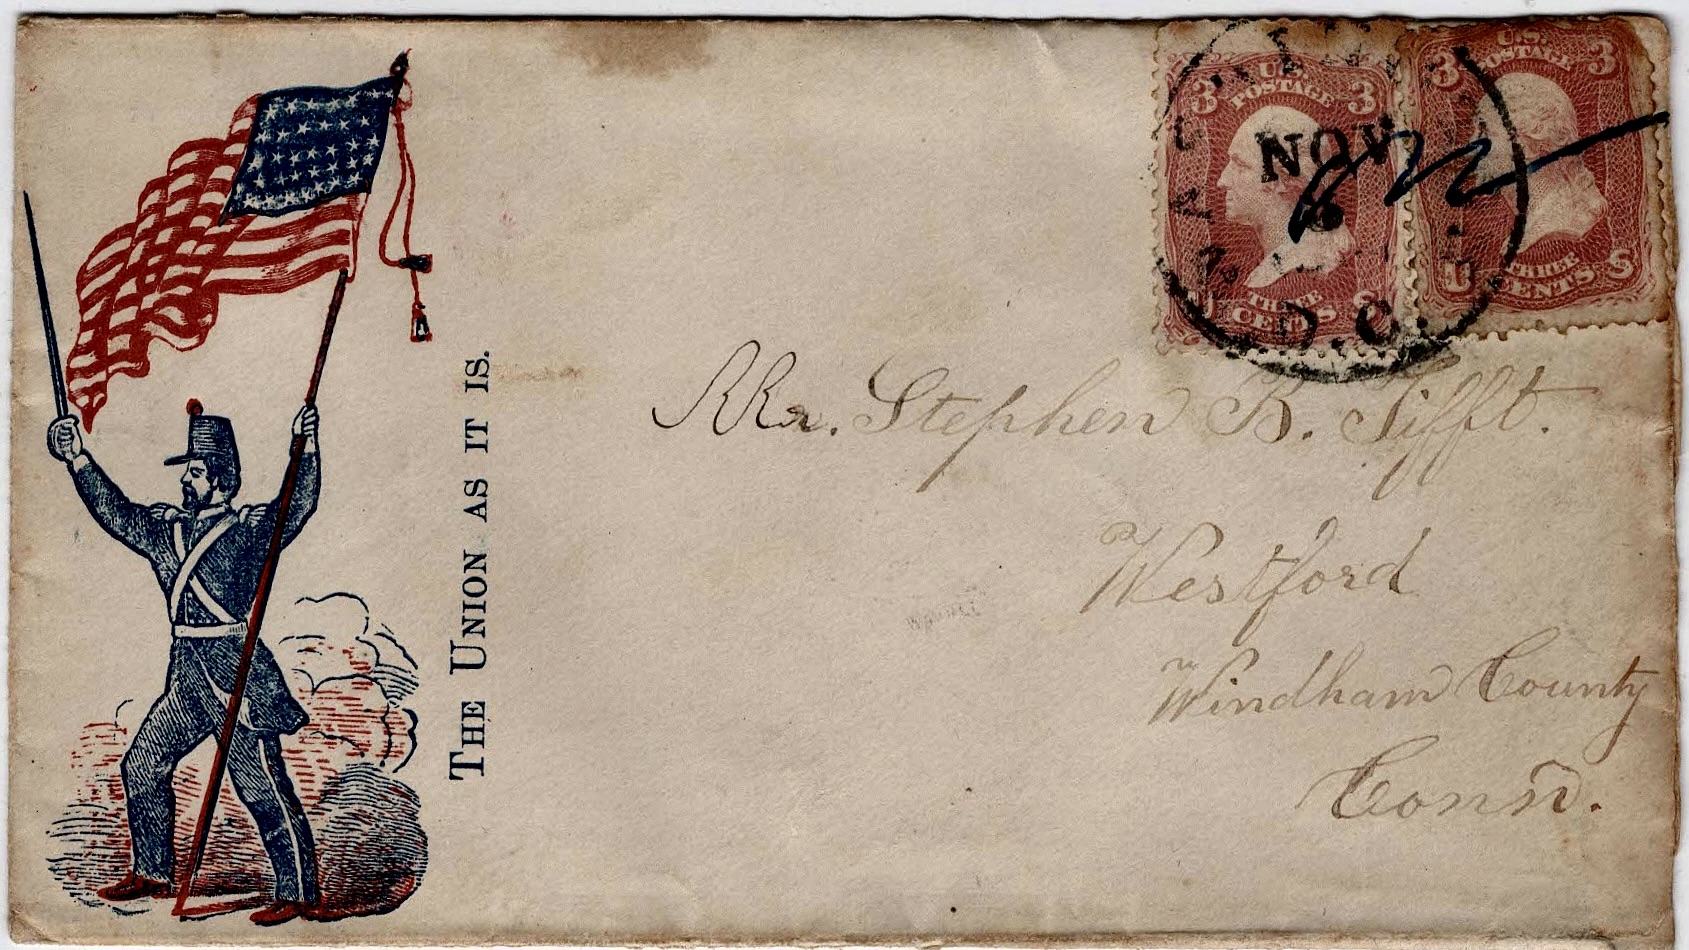 THE UNION AS IT IS.
U.S. POSTAGE
3 3
THREE
CENTS
U.S. POSTAGE
3 3
THREE
CENTS
NOV
D.C.
Mr. Stephen B. Tifft.
Westford
Windham County
Conn.